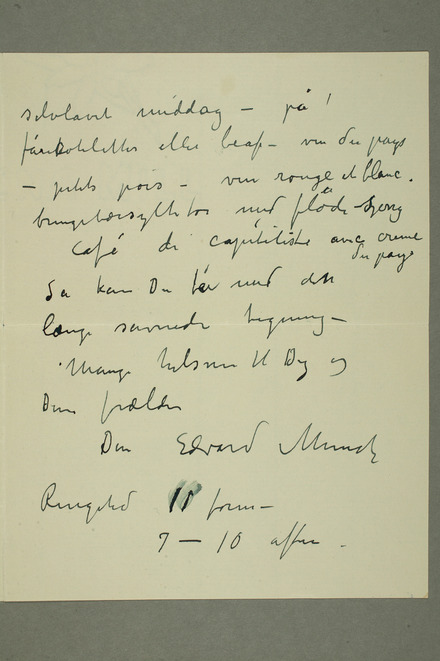 selvlavet middag – på!
fårekoteletter eller beaf – vin du pays
– petits pois – vin rouge et blanc.
bringebærsyltetøi med fløde
Café du capitaliste avec creme
du pays
Så kan Du få med den
længe savnede tegning –
Mange hilsner til Dig og
Dine forældre
Din Edvard Munch
Ringetid 11 form –
7 – 10 aften.